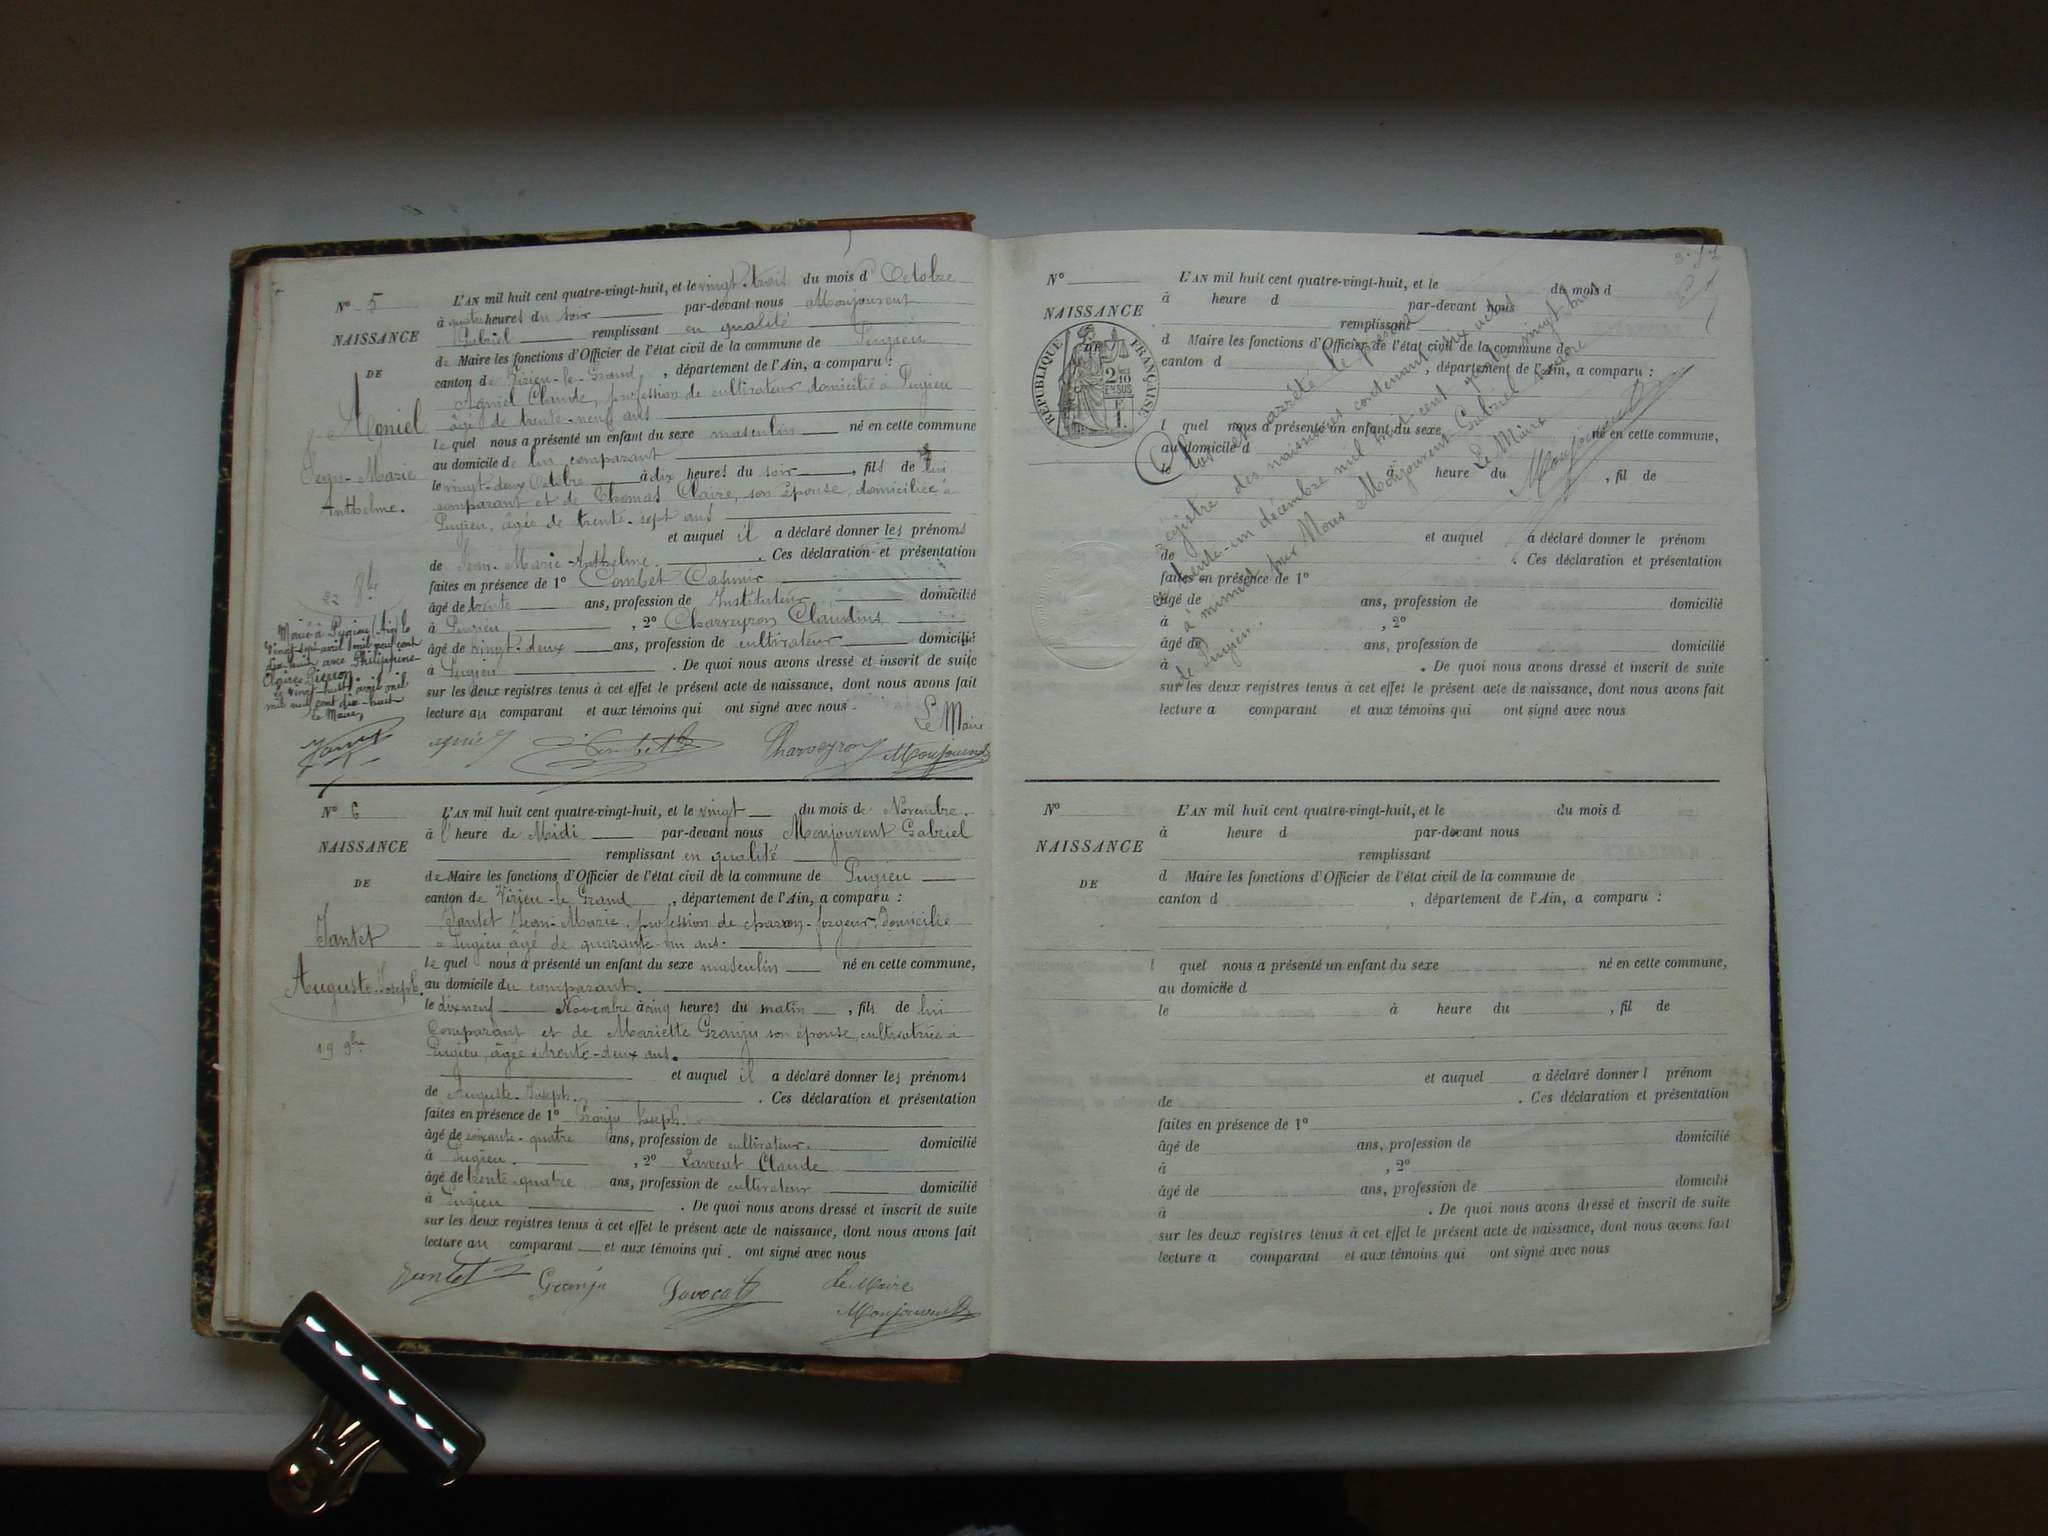 N° 5
NAISSANCE
DE
Agniel
Jean-Marie
Anthelme.
22 8bre
Marié à Pugieu (Ain) le
vingt-sept avril mil neuf cent
dix-huit avec Philippine
le vingt-huit avril mil
mil neuf cent dix-huit
Le Maire,
L'AN mil huit cent quatre-vingt-huit, et le vingt-trois du mois d'Octobre
à quatre heures du soir par-devant nous Monjouvent
Gabriel remplissant en qualité
de Maire les fonctions d'Officier de l'état civil de la commune de Pugieu
canton de Virieu-le-Grand, département de l'Ain, a comparu :
Agniel Claude, profession de cultivateur domicilié à Pugieu
âgé de trente-neuf ans
lequel nous a présenté un enfant du sexe masculin né en cette commune
au domicile de lui comparant
le vingt-deux Octobre à dix heures du soir, fils de lui
comparant et de Thomas Claire, son épouse, domiciliée à
Pugieu, âgée de trente-sept ans
et auquel il a déclaré donner les prénoms
de Jean-Marie-Anthelme. Ces déclaration et présentation
faites en présence de 1° Combet Casimir
âgé de trente ans, profession de Instituteur domicilié
à Pugieu, 2° Charveyron Claudius
âgé de vingt-deux ans, profession de cultivateur domicilié
à Pugieu. De quoi nous avons dressé et inscrit de suite
sur les deux registres tenus à cet effet le présent acte de naissance, dont nous avons fait
lecture au comparant et aux témoins qui ont signé avec nous.
Le Maire
Agniel Combet Charveyron Monjouvent
N° 6
NAISSANCE
DE
Jantet
Auguste-Joseph.
19 9bre
L'AN mil huit cent quatre-vingt-huit, et le vingt du mois de Novembre.
à l'heure de Midi par-devant nous Monjouvent Gabriel
remplissant en qualité
de Maire les fonctions d'Officier de l'état civil de la commune de Pugieu
canton de Virieu-le-Grand, département de l'Ain, a comparu :
Jantet Jean-Marie, profession de charron-forgeur, domicilié
à Pugieu âgé de quarante-un ans.
lequel nous a présenté un enfant du sexe masculin né en cette commune,
au domicile du comparant.
le dix neuf Novembre à cinq heures du matin, fils de lui
comparant et de Mariette Granju son épouse, cultivatrice à
Pugieu, âgée de trente-deux ans.
et auquel il a déclaré donner les prénoms
de Auguste-Joseph. Ces déclaration et présentation
faites en présence de 1° Granju Joseph.
âgé de soixante-quatre ans, profession de cultivateur. domicilié
à Pugieu., 2° Claude
âgé de trente-quatre ans, profession de cultivateur domicilié
à Pugieu. De quoi nous avons dressé et inscrit de suite
sur les deux registres tenus à cet effet le présent acte de naissance, dont nous avons fait
lecture au comparant et aux témoins qui ont signé avec nous
Jantet Granju Le Maire
Monjouvent
N°
NAISSANCE
DE
RÉPUBLIQUE FRANÇAISE
2/10 EN SUS
L'AN mil huit cent quatre-vingt-huit, et le du mois d
à heure d par-devant nous
remplissant
d Maire les fonctions d'Officier de l'état civil de la commune de
canton d , département de l'Ain, a comparu :
l quel nous a présenté un enfant du sexe né en cette commune,
au domicile d
le à heure du , fil de
et auquel a déclaré donner le prénom
de . Ces déclaration et présentation
faites en présence de 1°
âgé de ans, profession de domicilié
à , 2°
âgé de ans, profession de domicilié
à . De quoi nous avons dressé et inscrit de suite
sur les deux registres tenus à cet effet le présent acte de naissance, dont nous avons fait
lecture a comparant et aux témoins qui ont signé avec nous
Clos et arrêté le présent
registre des naissances contenant six actes
le trente-un décembre mil huit-cent quatre-vingt-huit
à minuit par Nous Monjouvent Gabriel maire
de Pugieu.
Le Maire
Monjouvent
N°
NAISSANCE
DE
L'AN mil huit cent quatre-vingt-huit, et le du mois d
à heure d par-devant nous
remplissant
d Maire les fonctions d'Officier de l'état civil de la commune de
canton d , département de l'Ain, a comparu :
l quel nous a présenté un enfant du sexe né en cette commune,
au domicile d
le à heure du , fil de
et auquel a déclaré donner l prénom
de . Ces déclaration et présentation
faites en présence de 1°
âgé de ans, profession de domicilié
à , 2°
âgé de ans, profession de domicilié
à . De quoi nous avons dressé et inscrit de suite
sur les deux registres tenus à cet effet le présent acte de naissance, dont nous avons fait
lecture a comparant et aux témoins qui ont signé avec nous